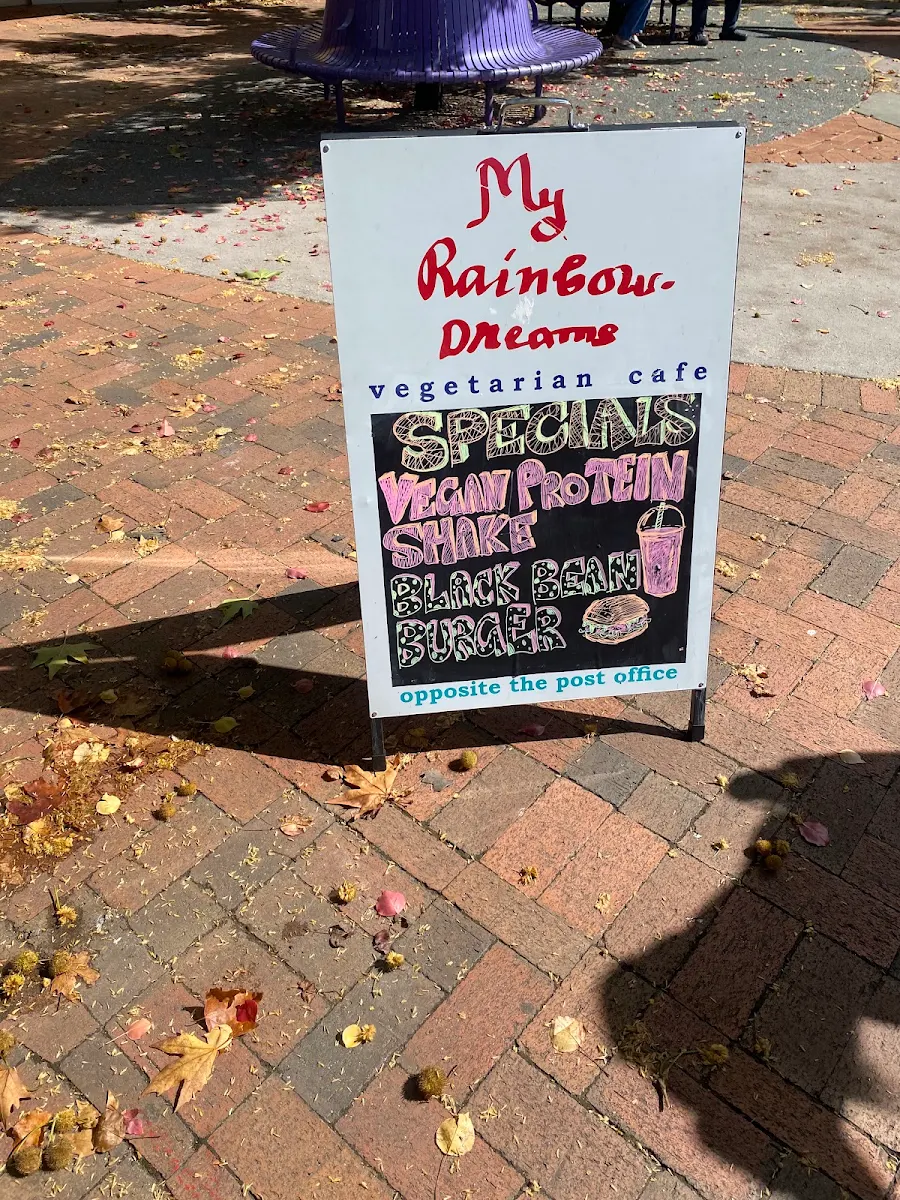 My
Rainbow-
Dreams
vegetarian cafe
SPECIALS
VEGAN PROTEIN
SHAKE
BLACK BEAN
BURGER
opposite the post office